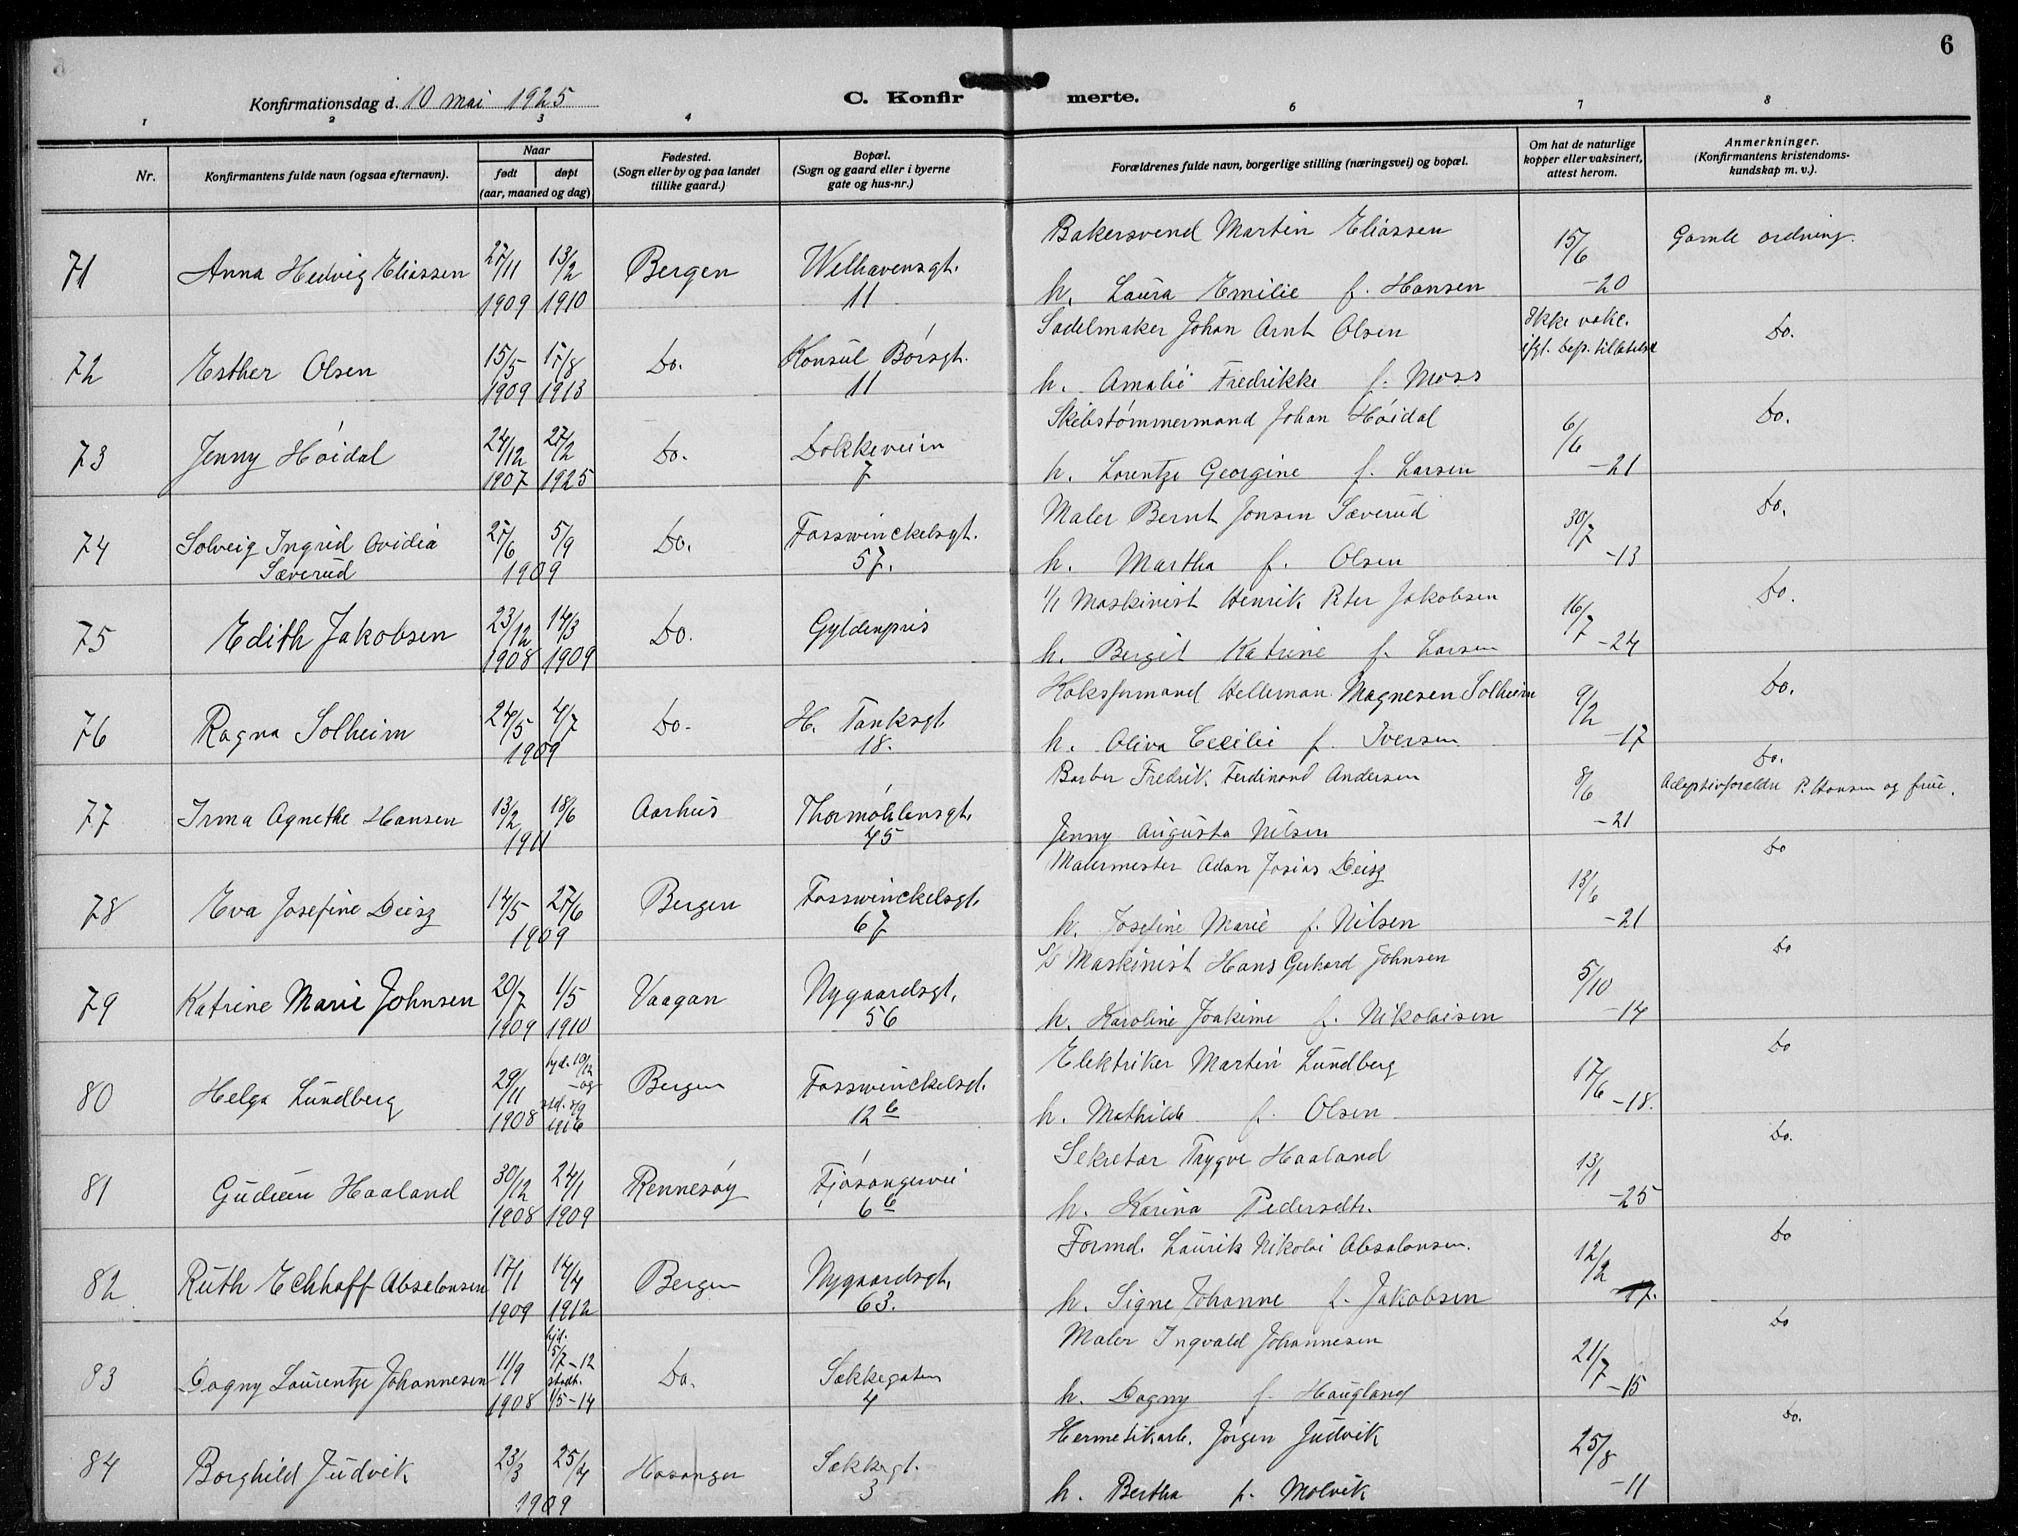 6
Konfirmationsdag d. 10 mai 1925
C. Konfirmerte.
1 2 3 4 6 7 8
Nr.
Konfirmantens fulde navn (ogsaa efternavn).
Naar
født døpt
(aar, maaned og dag)
Fødested.
(Sogn eller by og paa landet
tillike gaard.)
Bopæl.
(Sogn og gaard eller i byerne
gate og hus-nr.)
Forældrenes fulde navn, borgerlige stilling (næringsvei) og bopæl.
Om hat de naturlige
kopper eller vaksinert,
attest herom.
Anmerkninger.
(Konfirmantens kristendoms-
kundskap m. v.).
Bakersvend Martin Eliassen 15/6 Gamle ordning.
71 Anna Hedvig Eliassen 27/11 13/2 Bergen Welhavensgt.
1909 1910 11 h. Laura Emilie f. Hansen -20
Sadelmaker Johan Arnt Olsen Ikke vaks. Do.
72 Esther Olsen 15/5 17/8 Do. Konsul Børsgt. ifgl. bisp. tillatelse
1909 1913 11 h. Amalie Fredrikke f. Moss
Skibstømmermand Johan Høidal 6/6 Do.
73 Jenny Høidal 24/12 27/2 Do. Dokkeveien
1907 1925 7 h. Lorentze Georgine f. Larsen -21
Maler Bernt Jonsen Sæverud 30/7 Do.
74 Solveig Ingrid Ovidia 27/6 5/9 Do. Fosswinckelsgt.
Sæverud 1909 57. h. Martha f. Olsen -13
1/1 Maskinist Henrik Peter Jakobsen 16/7 Do.
75 Edith Jakobsen 23/12 14/3 Do. Gyldenpris
1908 1909 h. Bergit Katrine f. Larsen -24
Koksformand Helleman Magnesen Solheim 9/2 Do.
76 Ragna Solheim 24/5 4/7 Do. H. Tanksgt.
1909 18. h. Oliva Cecilie f. Iversen -17
Do.
Barber Fredrik Ferdinand Andersen 8/6 Adoptivforældre P. Hansen og frue.
77 Irma Agnethe Hansen 13/2 18/6 Aarhus Thormøhlensgt.
1911 45 Jenny Augusta Nilsen -21
Malermester Adon Josias Deisz 13/6 Do
78 Eva Josefine Deisz 14/5 27/6 Bergen Fosswinckelsgt.
1909 67 h. Josefine Marie f. Nilsen -21
S/S Maskinist Hans Gerhard Johnsen 5/10 Do
79 Katrine Marie Johnsen 20/7 1/5 Vaagan Nygaardsgt.
1909 1910 56 h. Karoline Joakime f. Nikolaisen -14
Elektriker Martin Lundberg 17/6 Do
80 Helga Lundberg 29/11 hjd. 19/12 -09 Bergen Fosswinckelsgt.
1908 std. 3/9 1916 12 b h. Mathilde f. Olsen -18.
Sekretær Trygve Haaland 13/1 Do.
81 Gudrun Haaland 30/12 24/1 Rennesøy Fjøsangervei
1908 1909 6 b h. Karina Pedersdtr. -25
Formd. Laurik Nikolai Absalonsen. 12/2 Do
82 Ruth Echhoff Absalonsen 17/1 14/4 Bergen Nygaardsgt.
1909 1912 63. h. Signe Johanne f. Jakobsen -17.
Maler Ingvald Johannesen 21/7 Do
83 Dagny Laurentze Johannesen 11/9 hjd. 5/7-12 Do. Sækkegaten
1908 stadf. 1/5-14 4 h. Dagny f. Haugland -15
Hermetikarb. Jørgen Judvik 25/8 Do.
84 Borghild Judvik 23/3 25/4 Hosanger Sækkegt.
1909 3 h. Bertha f. Molvik -11